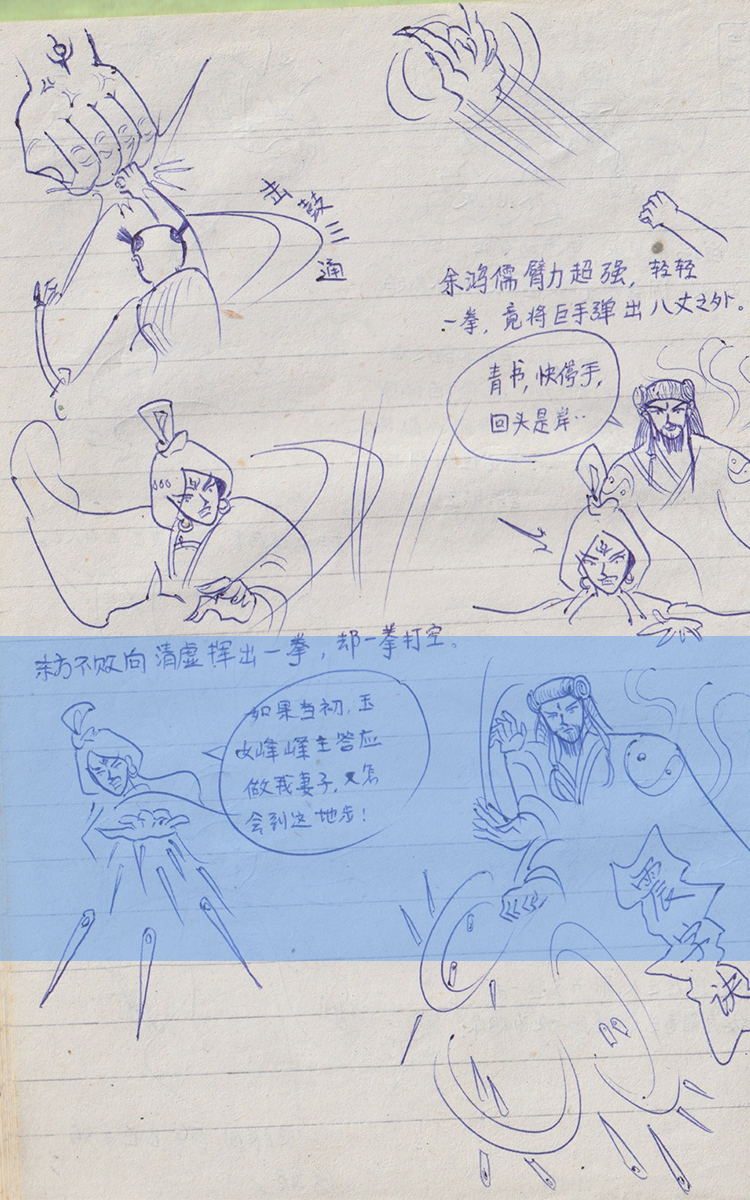 击鼓三通
余鸿儒臂力超强，轻轻
一拳，竟将巨手弹出八丈之外。
青书，快停手，
回头是岸··
东方不败向清虚挥出一拳，却一拳打空。
如果当初，玉
女峰峰主答应
做我妻子，又怎
会到这地步！
震字诀